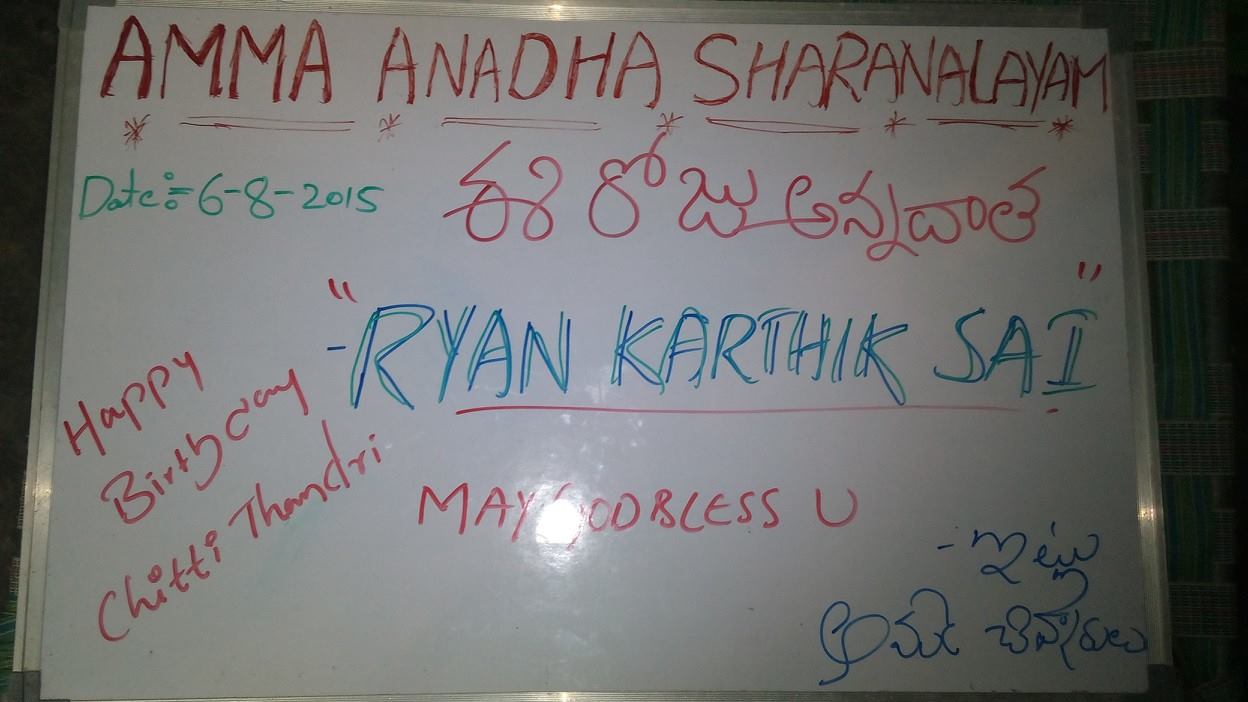 AMMA ANADHA SHARANALAYAM
Date:- 6-8-2015
ఈ రోజు అన్నదాత
"RYAN KARTHIK SAI"
Happy
Birthday
Chitti Thandri
MAY GOD BLESS U
- ఇట్లు
అమ్మ చిన్నారులు